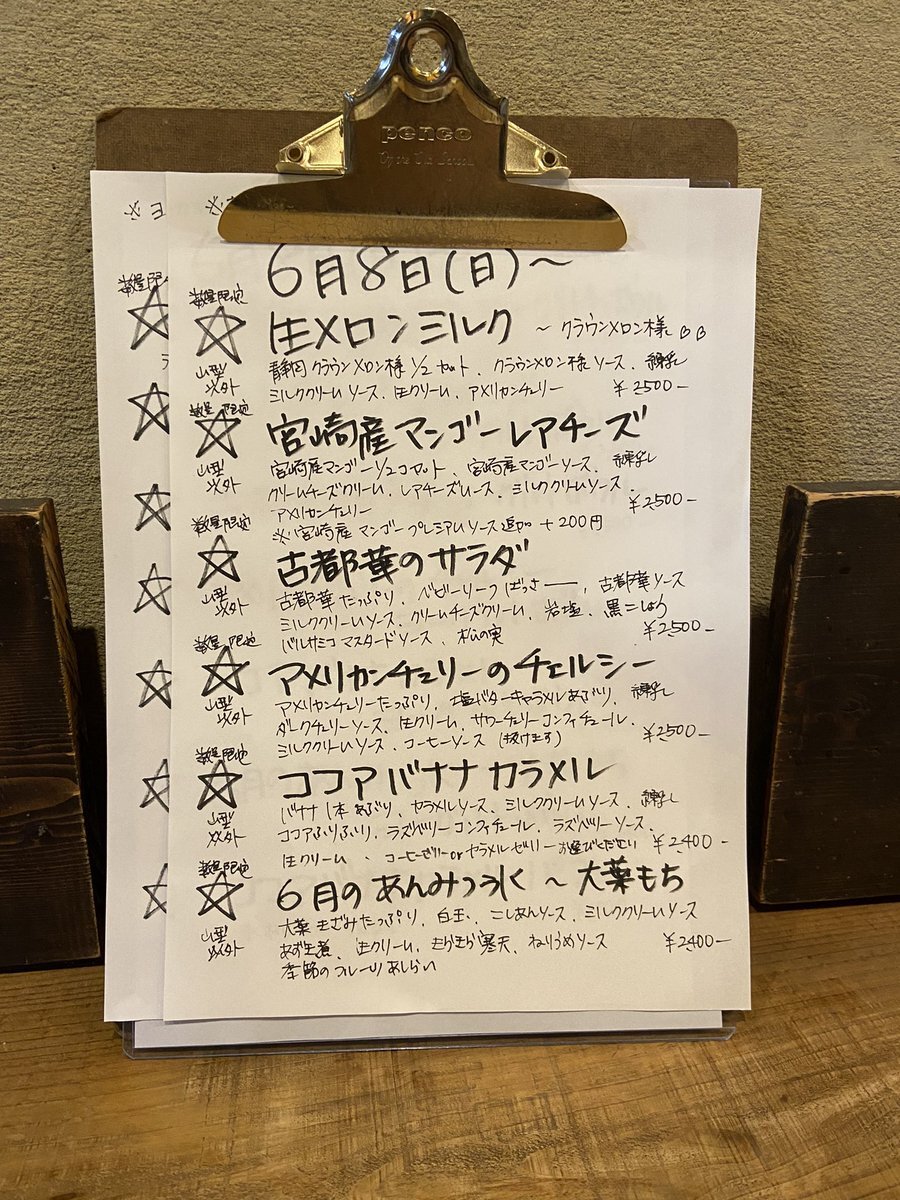 penco
6月8日(日)～
数量限定
生メロンミルク ～クラウンメロン様
山型以外
静岡クラウンメロン様1/2カット、クラウンメロン様ソース、練乳
ミルククリームソース、生クリーム、アメリカンチェリー ￥2500-
数量限定
宮崎産マンゴーレアチーズ
山型以外
宮崎産マンゴー1/2コカット、宮崎産マンゴーソース、練乳
クリームチーズクリーム、レアチーズムース、ミルククリームソース、
アメリカンチェリー ￥2500-
※宮崎産マンゴープレミアムソース追加 +200円
数量限定
古都華のサラダ
山型以外
古都華たっぷり、ベビーリーフばっさー、古都華ソース
ミルククリームソース、クリームチーズクリーム、岩塩、黒こしょう
バルサミコマスタードソース、松の実 ￥2500-
数量限定
アメリカンチェリーのチェルシー
山型以外
アメリカンチェリーたっぷり、塩バターキャラメルあぶり、練乳
ダークチェリーソース、生クリーム、サワーチェリーコンフィチュール、
ミルククリームソース、コーヒーソース(抜けます) ￥2500-
数量限定
ココアバナナカラメル
山型以外
バナナ1本あぶり、カラメルソース、ミルククリームソース、練乳
ココアふりふり、ラズベリーコンフィチュール、ラズベリーソース、
生クリーム、コーヒーゼリーorカラメルゼリーお選びください ￥2400-
数量限定
6月のあんみつ氷 ～大葉もち
山型以外
大葉きざみたっぷり、白玉、こしあんソース、ミルククリームソース
あずき煮、生クリーム、きらきら寒天、ねりうめソース ￥2400-
季節のフルーツあしらい